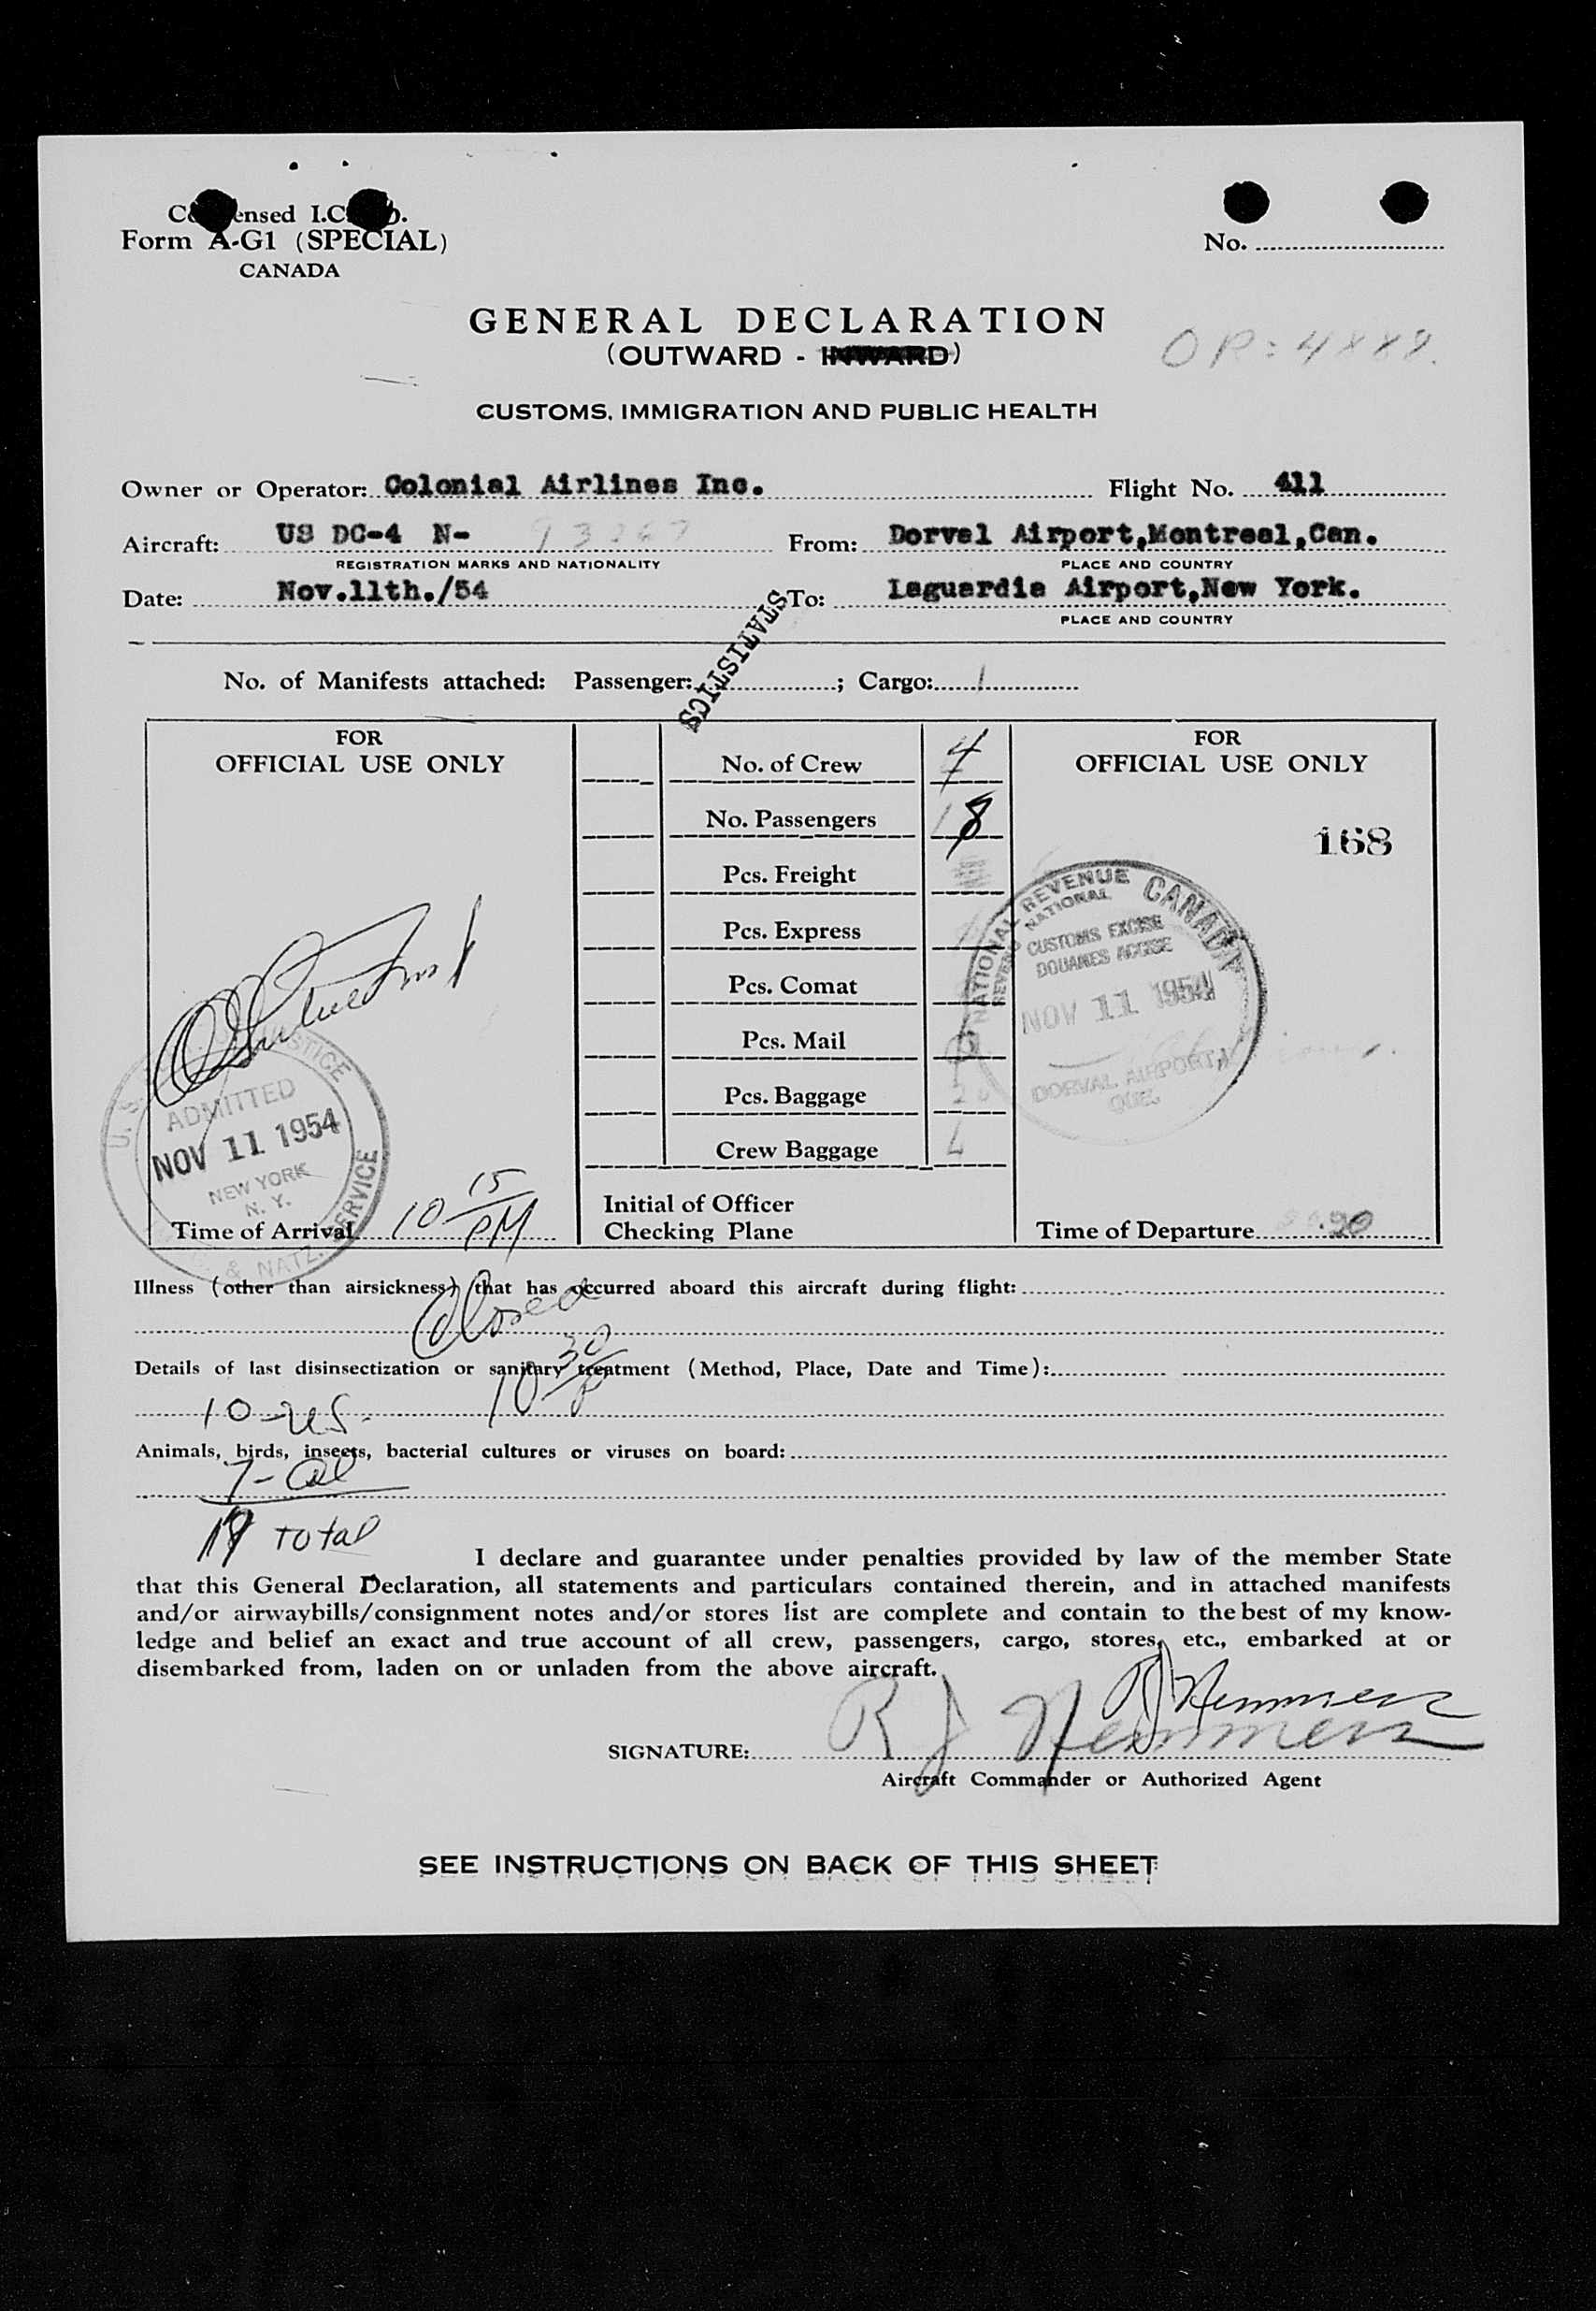 Condensed I.C.A.O.
Form A-G1 (SPECIAL)
CANADA
No.
GENERAL DECLARATION
(OUTWARD - INWARD)
CUSTOMS, IMMIGRATION AND PUBLIC HEALTH
Owner or Operator: Colonial Airlines Inc. Flight No. 411
Aircraft: US DC-4 N- From: Dorval Airport, Montreal, Can.
REGISTRATION MARKS AND NATIONALITY PLACE AND COUNTRY
Date: Nov.11th./54 To: Laguardia Airport, New York.
PLACE AND COUNTRY
STATISTICS
No. of Manifests attached: Passenger: ; Cargo: 1
FOR
OFFICIAL USE ONLY
No. of Crew 4
No. Passengers 18
Pcs. Freight
Pcs. Express
Pcs. Comat
Pcs. Mail
Pcs. Baggage
Crew Baggage
Initial of Officer
Checking Plane
FOR
OFFICIAL USE ONLY
168
NATIONAL REVENUE CANADA
REVENU NATIONAL
CUSTOMS EXCISE
DOUANES ACCISE
NOV 11 1954
DORVAL AIRPORT
QUE.
ADMITTED
NOV 11 1954
NEW YORK
N. Y.
& NATZ. SERVICE
Time of Arrival 10 15 PM
Time of Departure
Illness (other than airsickness) that has occurred aboard this aircraft during flight:
Closed
10 30 P
Details of last disinsectization or sanitary treatment (Method, Place, Date and Time):
10-US.
Animals, birds, insects, bacterial cultures or viruses on board:
7-
Total
I declare and guarantee under penalties provided by law of the member State
that this General Declaration, all statements and particulars contained therein, and in attached manifests
and/or airwaybills/consignment notes and/or stores list are complete and contain to the best of my know-
ledge and belief an exact and true account of all crew, passengers, cargo, stores, etc., embarked at or
disembarked from, laden on or unladen from the above aircraft.
SIGNATURE: R J Hemmerz
Aircraft Commander or Authorized Agent
SEE INSTRUCTIONS ON BACK OF THIS SHEET